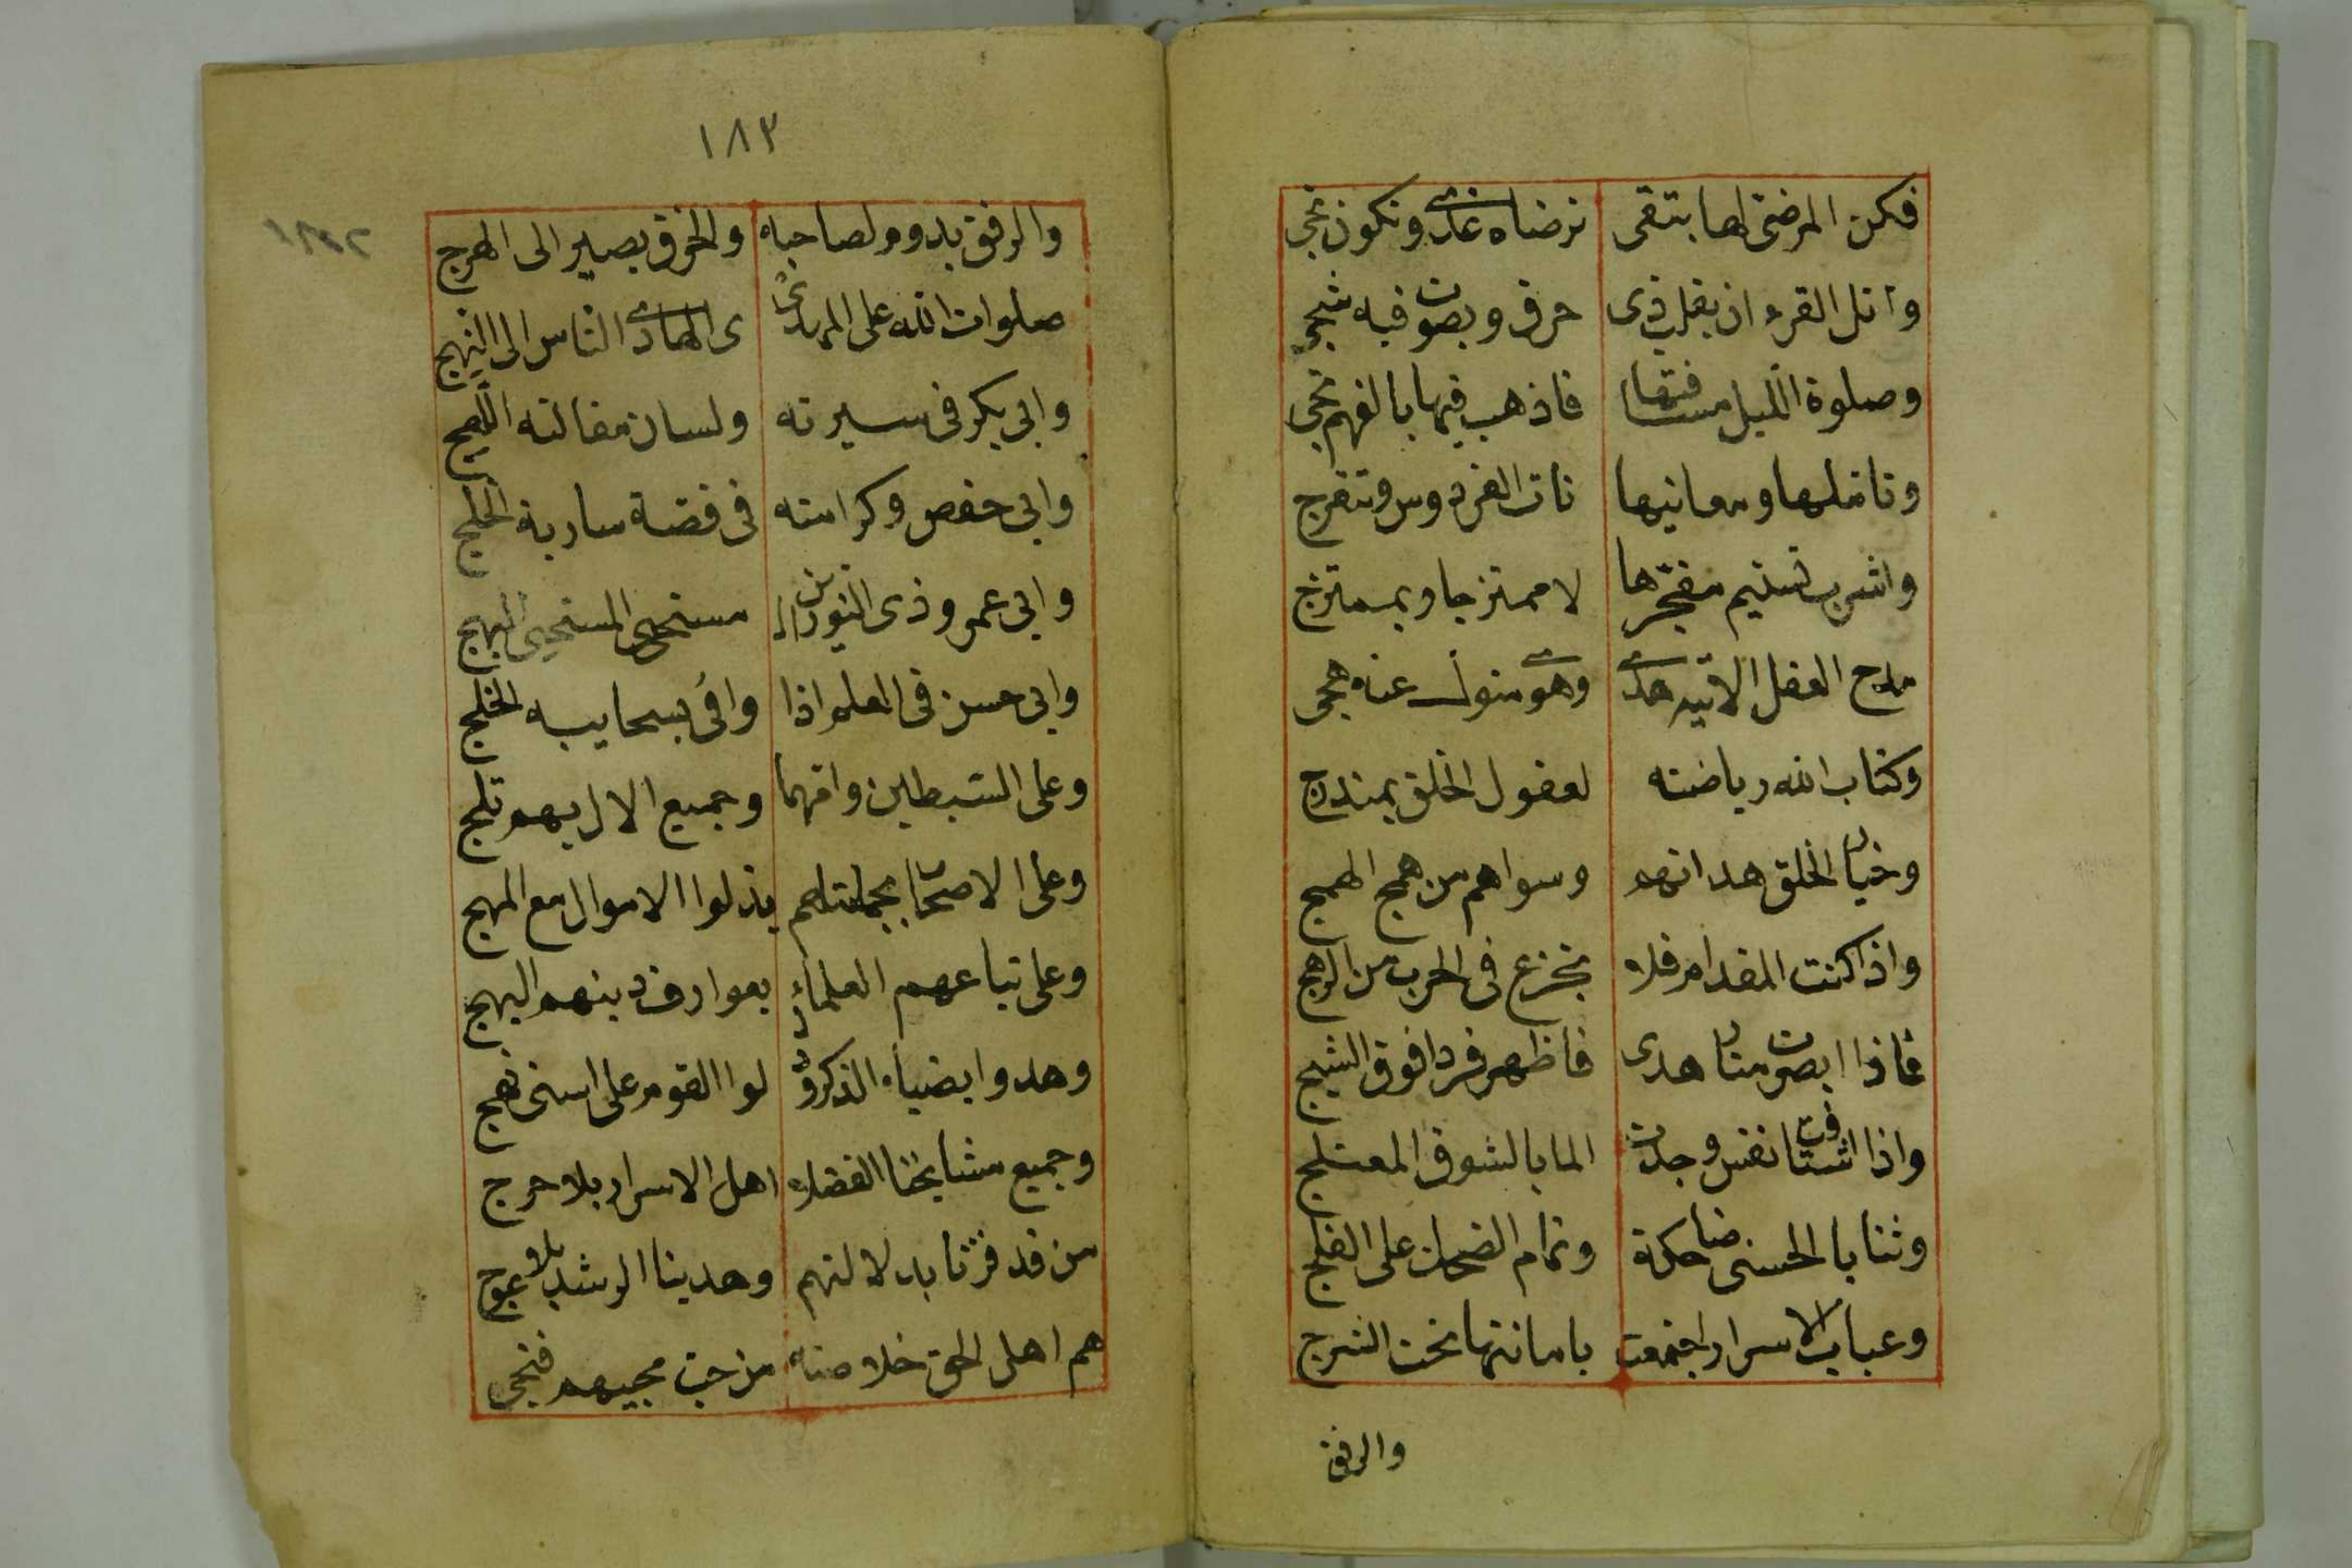 فكن المرضى لها بتقى ترضاه غدى وتكون نجى
واتل القرءان بقلب ذى حرق وبصوت فيه شجى
وصلوة الليل مسافتها فاذهب فيها بالفهم نجى
وتاملها ومعانيها تات الفردوس وتنفرج
واشرب تسنيم مفجرها لا ممتزجا وبممتزج
مدح العقل الاتيه هدى وهوى متول عنه هجى
وكتاب الله رياضته لعقول الخلق بمندرج
وخيار الخلق هداتهم وسواهم من همج الهمج
واذا كنت المقدام فلا تجزع فى الحرب من الرهج
فاذا ابصرت منار هدى فاظهر فردا فوق الثبج
واذا اشتاقت نفس وجدت الما بالشوق المعتلج
وثنايا الحسنى ضاحكة وتمام الضحك على الفلج
وعياب الاسرار اجتمعت بامانتها تحت الشرج
والرفق
١٨٣
والرفق يدوم لصاحبه والخرق يصير الى الهرج
صلوات الله على المهدى الهادى الناس الى النهج
وابى بكر فى سيرته ولسان مقالته اللهج
وابى حفص وكرامته فى قصة سارية الخلج
وابى عمرو ذى النورين المستحى المستحيى البهج
وابى حسن فى العلم اذا وافى بسحايبه الخلج
وعلى السبطين وامهما وجميع الال بهم تلج
وعلى الاصحاب بجملتهم بذلوا الاموال مع المهج
وعلى تباعهم العلماء بعوارف دينهم البهج
وهدوا بضياء الذكر ودلوا القوم على اسنى نهج
وجميع مشايخنا الفضلاء اهل الاسرار بلا حرج
من قد فزنا بدلالتهم وهدينا الرشد بلا عوج
هم اهل الحق خلاصته من حب محبيهم فنجى